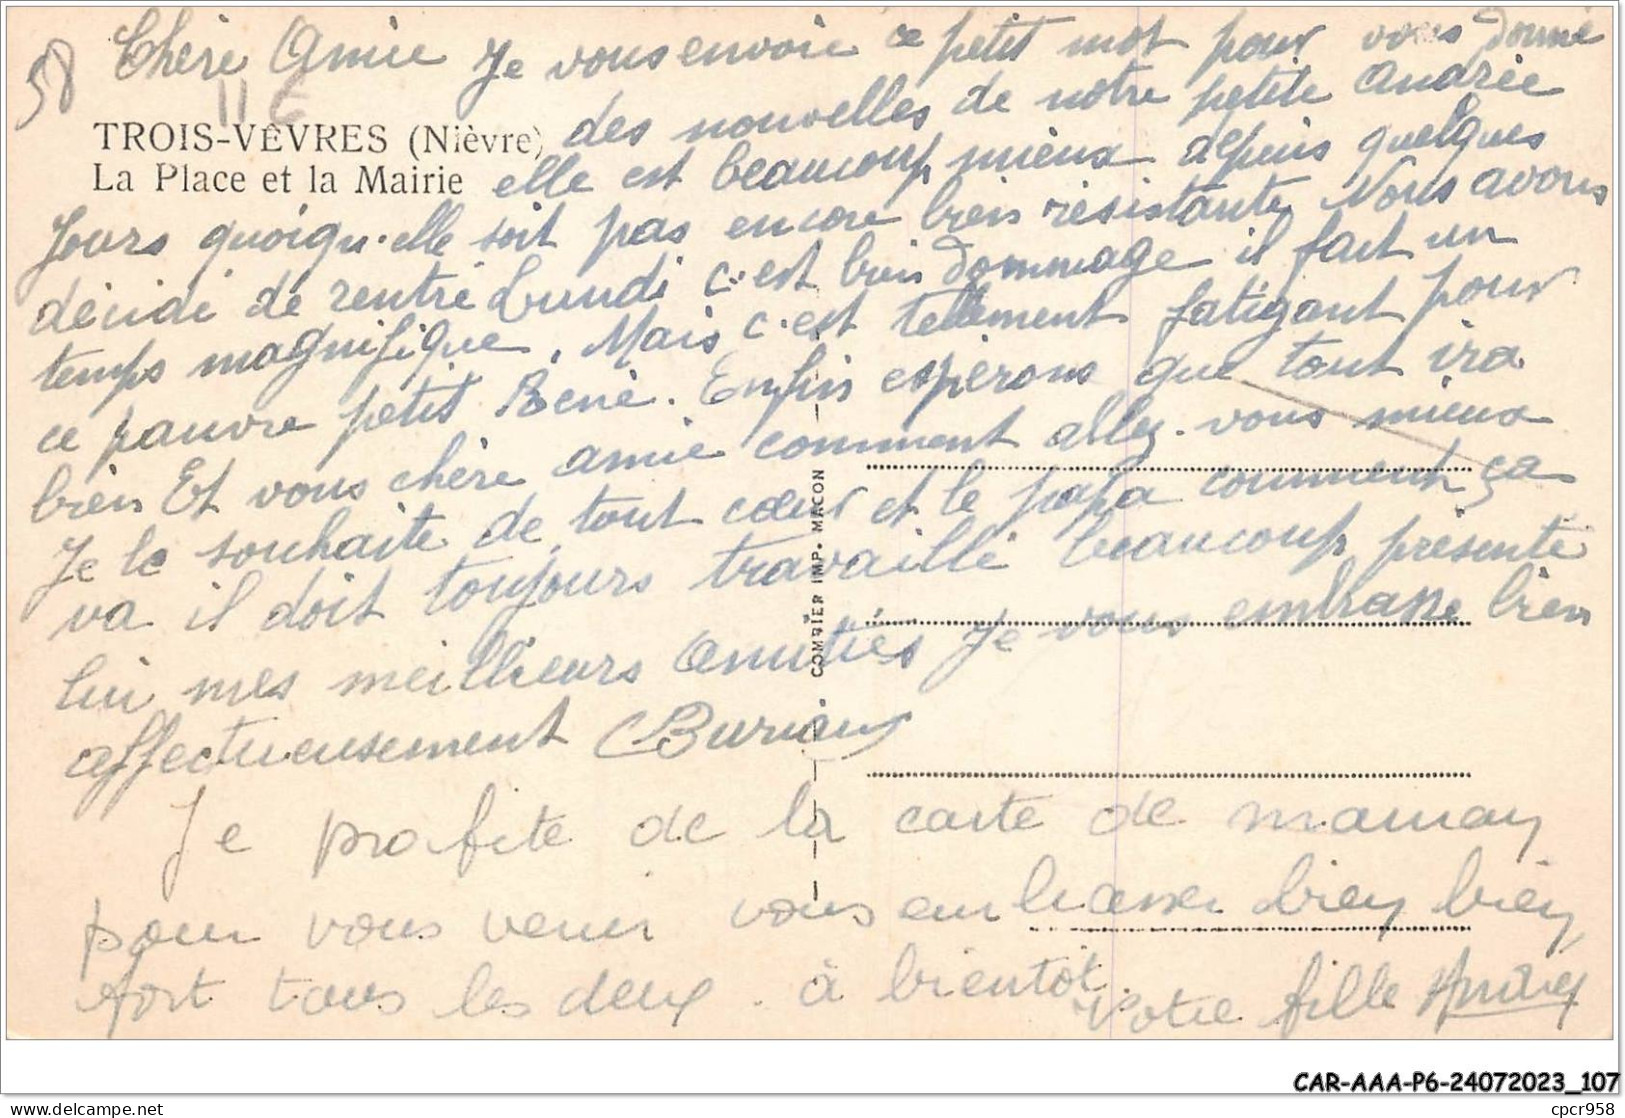 58
Chère Amie Je vous envoie ce petit mot pour vous donné
11€
TROIS-VÈVRES (Nièvre) des nouvelles de notre petite Andrée
La Place et la Mairie elle est beaucoup mieux depuis quelques
Jours quoiqu'elle soit pas encore bien résistante Nous avons
décidé de rentré Lundi c'est bien dommage il fait un
temps magnifique, Mais c'est tellement fatigant pour
ce pauvre petit René. Enfin espérons que tout ira
bien Et vous chère amie comment allez-vous mieux
Je le souhaite de tout cœur et le papa comment ça
va il doit toujours travaillé beaucoup présente
lui mes meilleurs Amitiés Je vous embrasse bien
affectueusement
Je profite de la carte de maman
pour vous venir vous embrasser bien bien
fort tous les deux. à bientôt.
Votre fille Andrée
COMBIER IMP. MACON
CAR-AAA-P6-24072023_107
delcampe.net
cpcr958